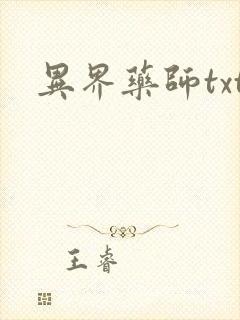 異界藥師txt
王睿